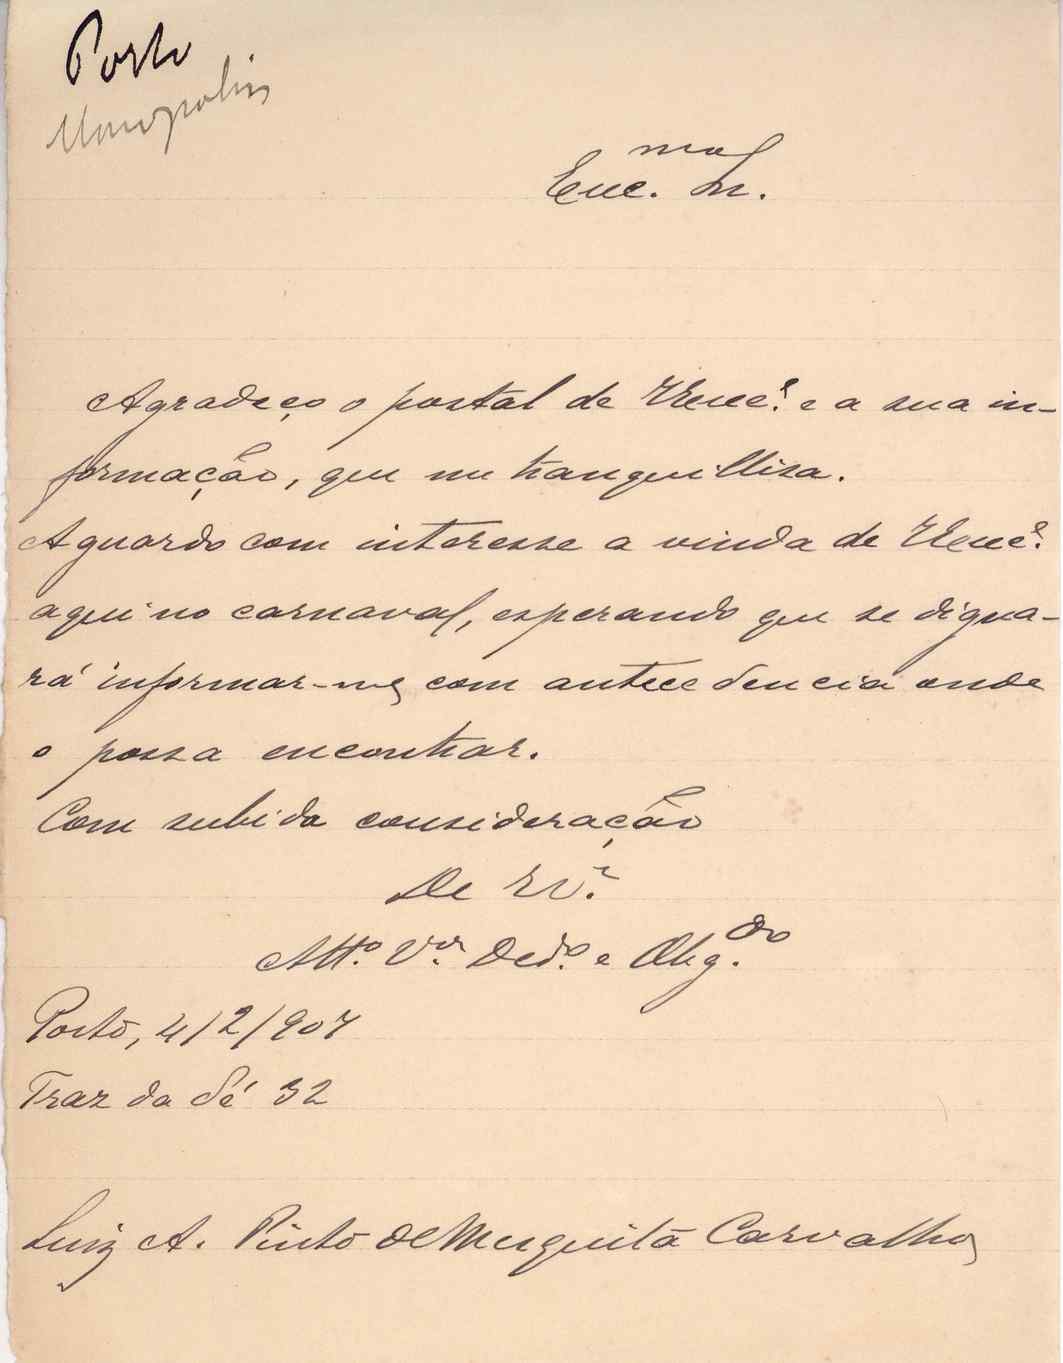 Porto
Monopolio
Exmo Sr.
Agradeço o postal de V. Exc.ª e a sua in-
formação, que me tranquillisa.
Aguardo com interesse a vinda de V. Exc.ª
aqui no carnaval, esperando que se digna-
rá informar-me com antecedencia onde
o possa encontrar.
Com subida consideração
De V.
Att.º V.or Ded.º e Obg.do
Porto, 4/2/907
Traz da Sé 32
Luiz A. Pinto de Mesquita Carvalho